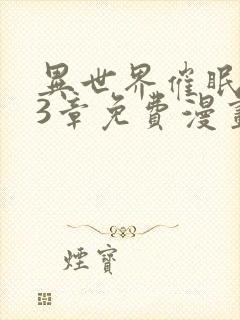 異世界催眠
3章免費漫畫
煙寶